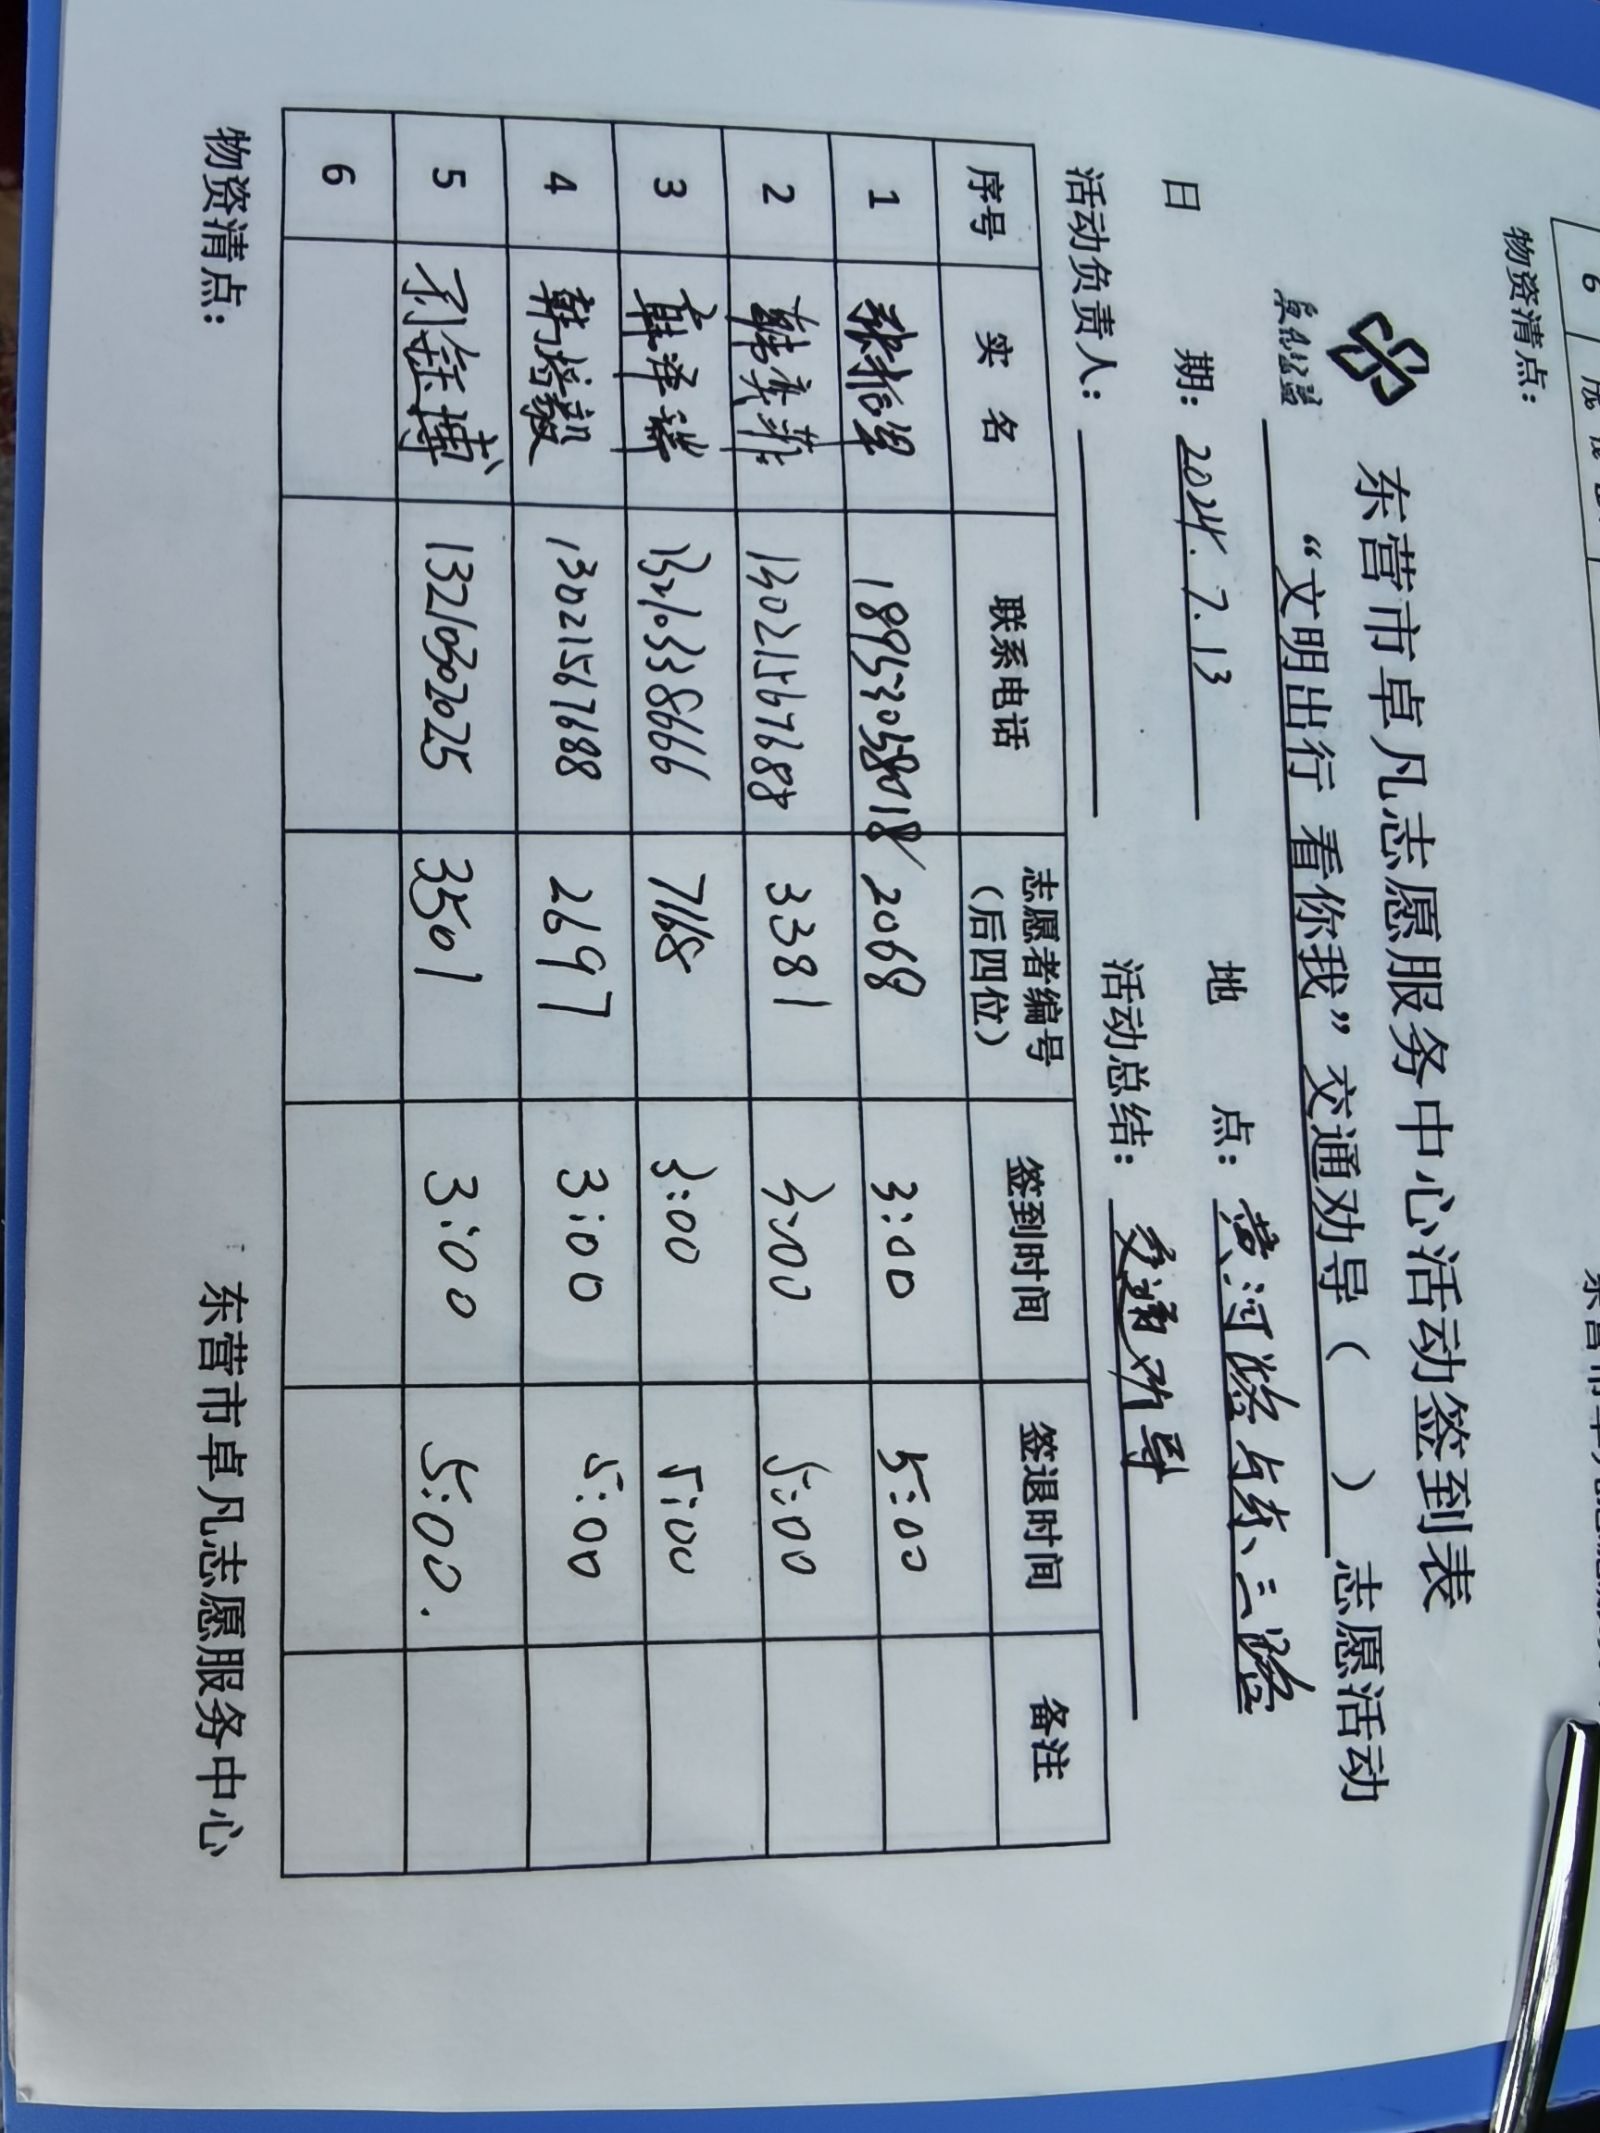 物资清点：
东营市卓凡志愿服务中心活动签到表
卓凡公益
“文明出行 看你我”交通劝导（ ）志愿活动
日 期：2024.7.13 地 点：黄河路与东三路
活动负责人： 活动总结：交通劝导
序号 实 名 联系电话 志愿者编号（后四位） 签到时间 签退时间 备注
1 2068 3:00 5:00
2 韩奕菲 13021567688 3381 3:00 5:00
3 泽 13210338666 7168 3:00 5:00
4 韩 13021567688 2697 3:00 5:00
5 孙钰博 13210302025 3501 3:00 5:00.
6
物资清点： 东营市卓凡志愿服务中心